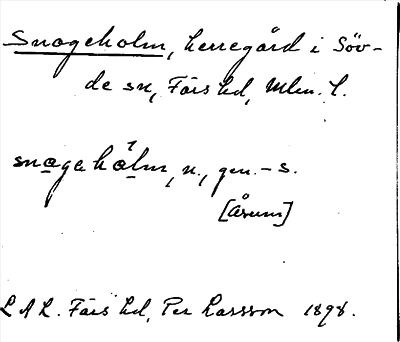 Snogeholm, herregård i Söv-
de sn, Färs hd, Mlm. l.
snogehólm, n., gen. -s.
[Årum]
L A L. Färs hd, Per Larsson 1898.